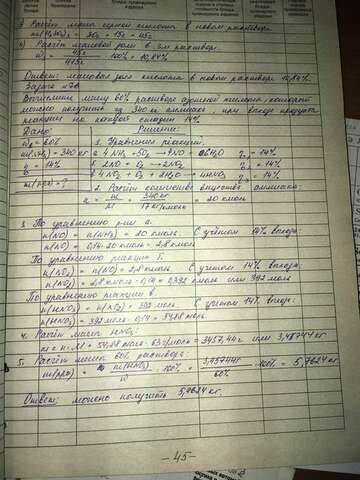 3) Расчёт массы серной кислоты в новом растворе.
m(H₂SO₄) = 30г + 15г = 45г
4) Расчёт массовой доли в 2м растворе.
45г
ω = 415г · 100% = 10,84%
Ответ: массовая доля кислоты в новом растворе 10,84%.
Задача №26
Вычислить массу 60% раствора азотной кислоты, который
можно получить из 340 кг аммиака, при выходе продукта
реакции на каждой стадии 14%.
Дано: Решение:
1. Уравнения реакций:
m(NH₃) = 340 кг а 4NH₃ + 5O₂ → 4NO + 6H₂O = 14%
= 14% б 2NO + O₂ → 2NO₂ = 14%
в 4NO₂ + O₂ + 2H₂O → 4HNO₃ = 14%
= ? 2. Расчёт количества вещества аммиака:
340кг
17 кг/кмоль = 20 кмоль
3. По уравнению р-ии а.
n(NO) = n(NH₃) = 20 кмоль. С учётом 14% выхода:
n(NO) = 0,14·20 кмоль = 2,8 кмоль
По уравнению реакции б.
n(NO₂) = n(NO) = 2,8 кмоль. С учётом 14% выхода:
n(NO₂) = 2,8 кмоль · 0,14 = 0,392 кмоль или 392 моль
По уравнению реакции в
n(HNO₃) = n(NO₂) = 392 моль. С учётом 14% выхода:
n(HNO₃) = 392 моль · 0,14 = 54,88 моль.
4. Расчёт массы HNO₃:
m = n · M = 54,88 моль · 63 г/моль = 3457,44 г или 3,45744 кг
5. Расчёт массы 60% раствора:
m(HNO₃) 3,45744кг
m(р-ра) = ω · 100% = 60% · 100% = 5,7624 кг
Ответ: можно получить 5,7624 кг.
-45-